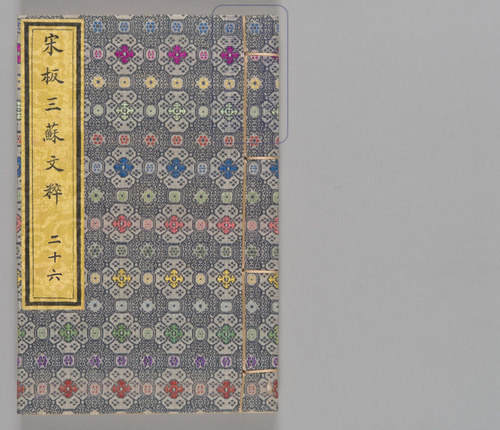 宋板三蘇文粹 二十六